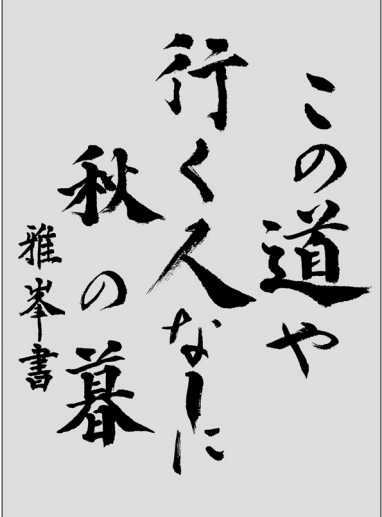 この道や
行く人なしに
秋の暮
雅峯書